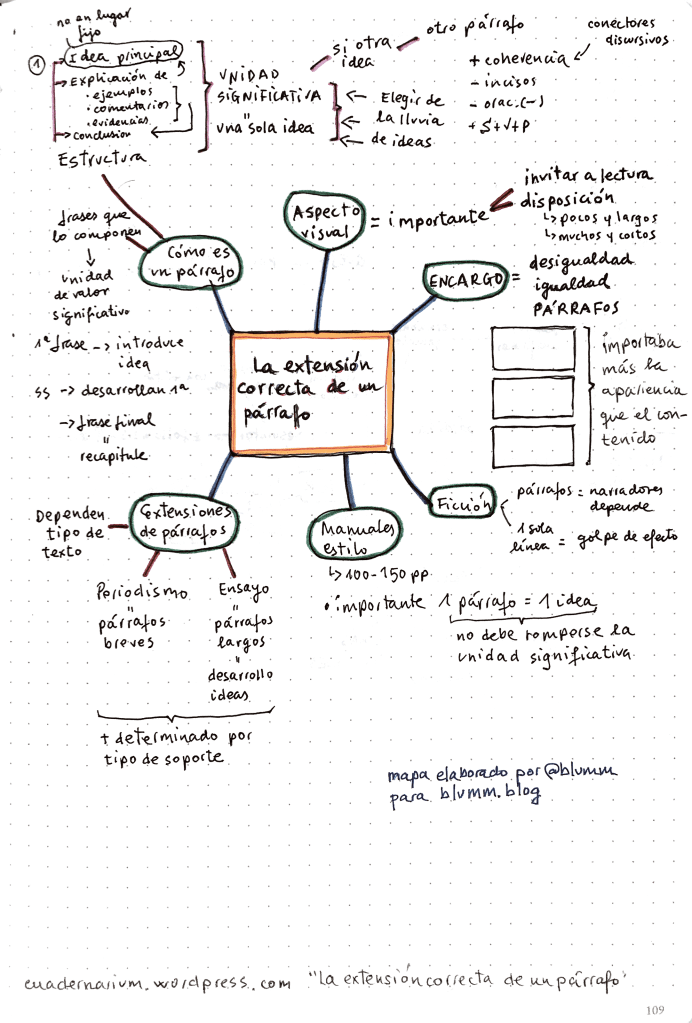 no en lugar
fijo
1
Idea principal
Explicación de
• ejemplos
• comentarios
• evidencias
conclusión
Estructura
UNIDAD
SIGNIFICATIVA
"
una sola idea
si otra
idea
otro párrafo
Elegir de
la lluvia
de ideas
conectores
discursivos
+ coherencia
- incisos
- orac. (-)
+ S+V+P
frases que
lo componen
unidad
de valor
significativo
Cómo es
un párrafo
1ª frase -> introduce
idea
ss -> desarrollan 1ª
-> frase final
"
recapitule
Aspecto
visual
= importante
invitar a lectura
disposición
↳ pocos y largos
↳ muchos y cortos
ENCARGO
= desigualdad
igualdad
PÁRRAFOS
importaba
más la
apariencia
que el con-
tenido
La extensión
correcta de un
párrafo
Dependen
tipo de
texto
Extensiones
de párrafos
Periodismo
"
párrafos
breves
Ensayo
"
párrafos
largos
"
desarrollo
ideas
+ determinado por
tipo de soporte
Manuales
estilo
↳ 100-150 pp.
• importante 1 párrafo = 1 idea
no debe romperse la
unidad significativa
Ficción
párrafos = narradores
depende
1 sola
línea = golpe de efecto
mapa elaborado por @blumm
para blumm.blog
cuadernarium.wordpress.com "La extensión correcta de un párrafo"
109